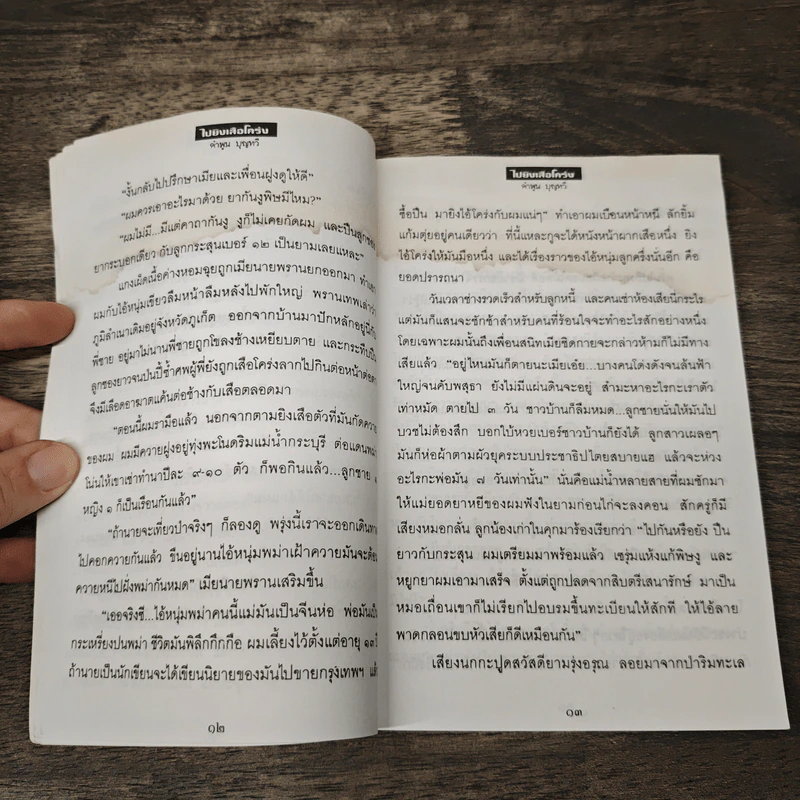 ไปยิงเสือโคร่ง
คำพูน บุญทวี
"งั้นกลับไปปรึกษาเมียและเพื่อนฝูงดูให้ดี"
"ผมควรเอาอะไรมาด้วย ยากันงูพิษมีไหม?"
"ผมไม่มี...มีแต่คาถากันงู งูก็ไม่เคยกัดผม และปืนลูกซอง
ยากระบอกเดียว กับลูกกระสุนเบอร์ ๑๒ เป็นยามเลยแหละ"
แกงเผ็ดเนื้อค่างหอมฉุยถูกเมียนายพรานยกออกมา ทำเอา
ผมกับไอ้หนุ่มเขี้ยวลืมหน้าลืมหลังไปพักใหญ่ พรานเทพเล่าว่า
ภูมิลำเนาเดิมอยู่จังหวัดภูเก็ต ออกจากบ้านมาปักหลักอยู่นี่กับ
พี่ชาย อยู่มาไม่นานพี่ชายถูกโขลงช้างเหยียบตาย และกระทืบปืน
ลูกซองยาวจนป่นปี้ ซ้ำศพผู้พี่ยังถูกเสือโคร่งลากไปกินต่อหน้าต่อตา
จึงมีเลือดอาฆาตแค้นต่อช้างกับเสือตลอดมา
"ตอนนี้ผมรามือแล้ว นอกจากตามยิงเสือตัวที่มันกัดควาย
ของผม ผมมีควายฝูงอยู่ทุ่งพะโนดริมแม่น้ำกระบุรี ต่อแดนพม่า
โน่นให้เขาเช่าทำนาปีละ ๙-๑๐ ตัว ก็พอกินแล้ว...ลูกชาย ๑
หญิง ๑ ก็เป็นเรือนกันแล้ว"
"ถ้านายจะเที่ยวป่าจริงๆ ก็ลองดู พรุ่งนี้เราจะออกเดินทาง
ไปคอกควายกันแล้ว ขืนอยู่นานไอ้หนุ่มพม่าเฝ้าควายมันจะต้อน
ควายหนีไปฝั่งพม่ากันหมด" เมียนายพรานเสริมขึ้น
"เออจริงซี...ไอ้หนุ่มพม่าคนนี้แม่มันเป็นจีนห่อ พ่อมันเป็น
กระเหรี่ยงปนพม่า ชีวิตมันพิลึกกึกกือ ผมเลี้ยงไว้ตั้งแต่อายุ ๑๓ ปี
ถ้านายเป็นนักเขียนจะได้เขียนนิยายของมันไปขายกรุงเทพฯ แล้ว
๑๒
ไปยิงเสือโคร่ง
คำพูน บุญทวี
ซื้อปืน มายิงไอ้โคร่งกับผมแน่ๆ" ทำเอาผมเบือนหน้าหนี ลักยิ้ม
แก้มตุ่ยอยู่คนเดียวว่า ที่นี่แหละกูจะได้หนังหน้าผากเสือหนึ่ง ยิง
ไอ้โคร่งให้มันมือหนึ่ง และได้เรื่องราวของไอ้หนุ่มลูกครึ่งนั่นอีก คือ
ยอดปรารถนา
วันเวลาช่างรวดเร็วสำหรับลูกหนี้ และคนเช่าห้องเสียนี่กระไร
แต่มันก็แสนจะชักช้าสำหรับคนที่ร้อนใจจะทำอะไรสักอย่างหนึ่ง
โดยเฉพาะผมนั้นถึงเพื่อนสนิทเมียชิดกายจะกล่าวห้ามก็ไม่มีทาง
เสียแล้ว "อยู่ไหนมันก็ตายนะเมียเอ๋ย...บางคนโด่งดังจนลั่นฟ้า
ใหญ่จนคับพสุธา ยังไม่มีแผ่นดินจะอยู่ สำมะหาอะไรกะเราตัว
เท่าหมัด ตายไป ๓ วัน ชาวบ้านก็ลืมหมด...ลูกชายนั่นให้มันไป
บวชไม่ต้องสึก บอกใบ้หวยเบอร์ชาวบ้านก็ยังได้ ลูกสาวเผลอๆ
มันก็ห่อผ้าตามผัวยุคระบบประชาธิปไตยสบายแฮ แล้วจะห่วง
อะไรกะพ่อมัน ๗ วันเท่านั้น" นั่นคือแม่น้ำหลายสายที่ผมชักมา
ให้แม่ยอดยาหยีของผมฟังในยามก่อนไก่จะลงคอน สักครู่ก็มี
เสียงหมอกลั่น ลูกน้องเก่าในคุกมาร้องเรียกว่า "ไปกันหรือยัง ปืน
ยาวกับกระสุน ผมเตรียมมาพร้อมแล้ว เซรุ่มแห้งแก้พิษงู และ
หยูกยาผมเอามาเสร็จ ตั้งแต่ถูกปลดจากสิบตรีเสนารักษ์ มาเป็น
หมอเถื่อนเขาก็ไม่เรียกไปอบรมขึ้นทะเบียนให้สักที ให้ไอ้ลาย
พาดกลอนขบหัวเสียก็ดีเหมือนกัน"
เสียงนกกะปูดสวัสดียามรุ่งอรุณ ลอยมาจากป่าริมทะเล
๑๓